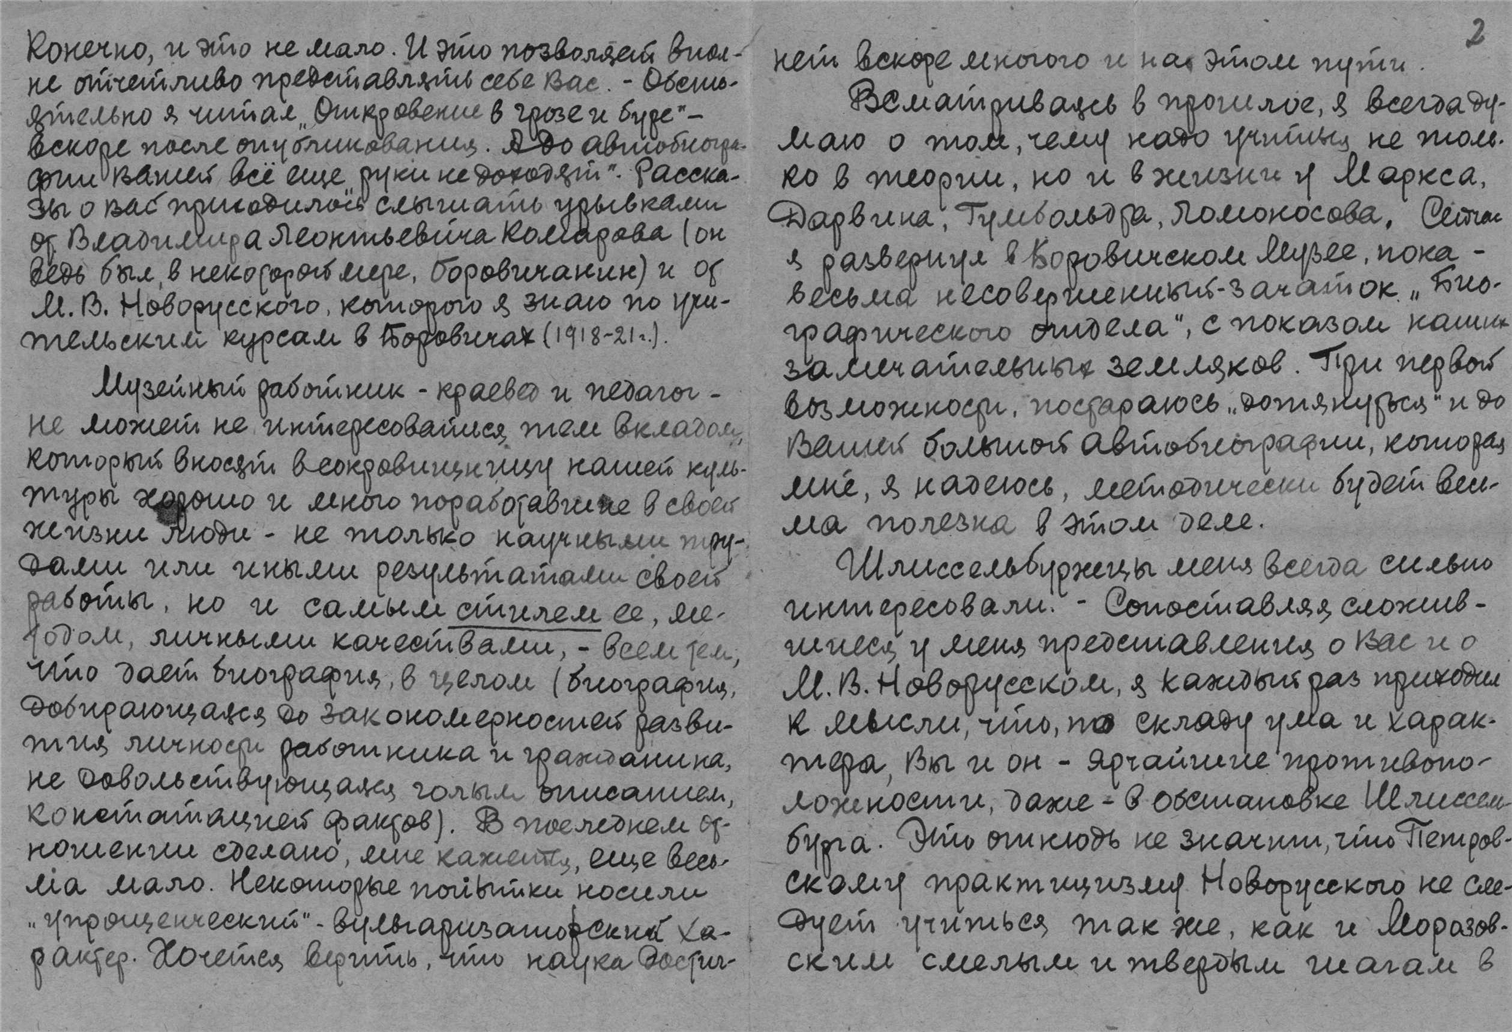 Конечно, и это не мало. И это позволяет впол-
не отчетливо представлять себе Вас. - Обсто-
ятельно я читал „Откровение в грозе и буре" -
вскоре после опубликования. А до автобиогра-
фии Вашей всё еще „руки не доходят". Расска-
зы о Вас приходилось слышать урывками
от Владимира Леонтьевича Комарова (он
ведь был, в некоторой мере, боровичанин) и от
М. В. Новорусского, которого я знаю по учи-
тельским курсам в Боровичах (1918-21г.).
Музейный работник - краевед и педагог -
не может не интересоваться тем вкладом,
который вносят в сокровищницу нашей куль-
туры хорошо и много поработавшие в своей
жизни люди - не только научными тру-
дами или иными результатами своей
работы, но и самым стилем ее, ме-
тодом, личными качествами, - всем тем,
что дает биография, в целом (биография,
добирающаяся до закономерностей разви-
тия личности работника и гражданина,
не довольствующаяся голым описанием,
констатацией фактов). В последнем от-
ношении сделано, мне кажется, еще весь-
ма мало. Некоторые попытки носили
„упрощенческий" - вульгаризаторский ха-
рактер. Хочется верить, что наука достиг-
2
нет вскоре многого и на этом пути.
Всматриваясь в прошлое, я всегда ду-
маю о том, чему надо учиться не толь-
ко в теории, но и в жизни у Маркса,
Дарвина, Гумбольдта, Ломоносова.
я развернул в Боровичском Музее, пока -
весьма несовершенный - зачаток „Био-
графического отдела", с показом наших
замечательных земляков. При первой
возможности, постараюсь „дотянуться" и до
Вашей большой автобиографии, которая
мне, я надеюсь, методически будет весь-
ма полезна в этом деле.
Шлиссельбуржцы меня всегда сильно
интересовали. - Сопоставляя сложив-
шиеся у меня представления о Вас и о
М. В. Новорусском, я каждый раз приходил
к мысли, что, по складу ума и харак-
тера, Вы и он - ярчайшие противопо-
ложности, даже - в обстановке Шлиссель-
бурга. Это отнюдь не значит, что Петров-
скому практицизму Новорусского не сле-
дует учиться так же, как и Морозов-
ским смелым и твердым шагам в